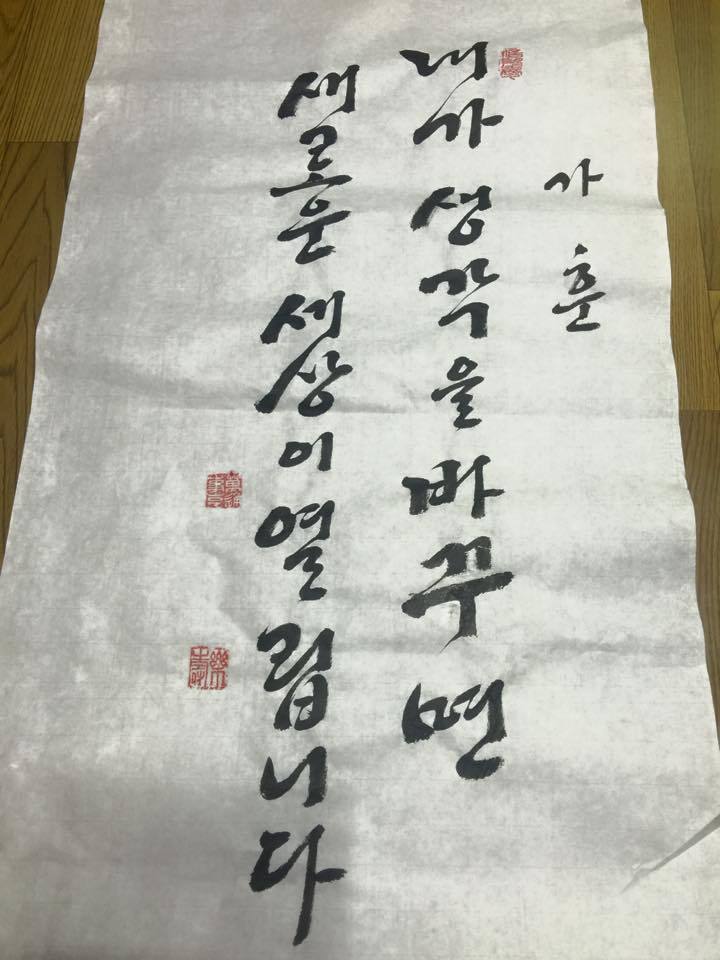 가훈
내가 생각을 바꾸면
새로운 세상이 열립니다